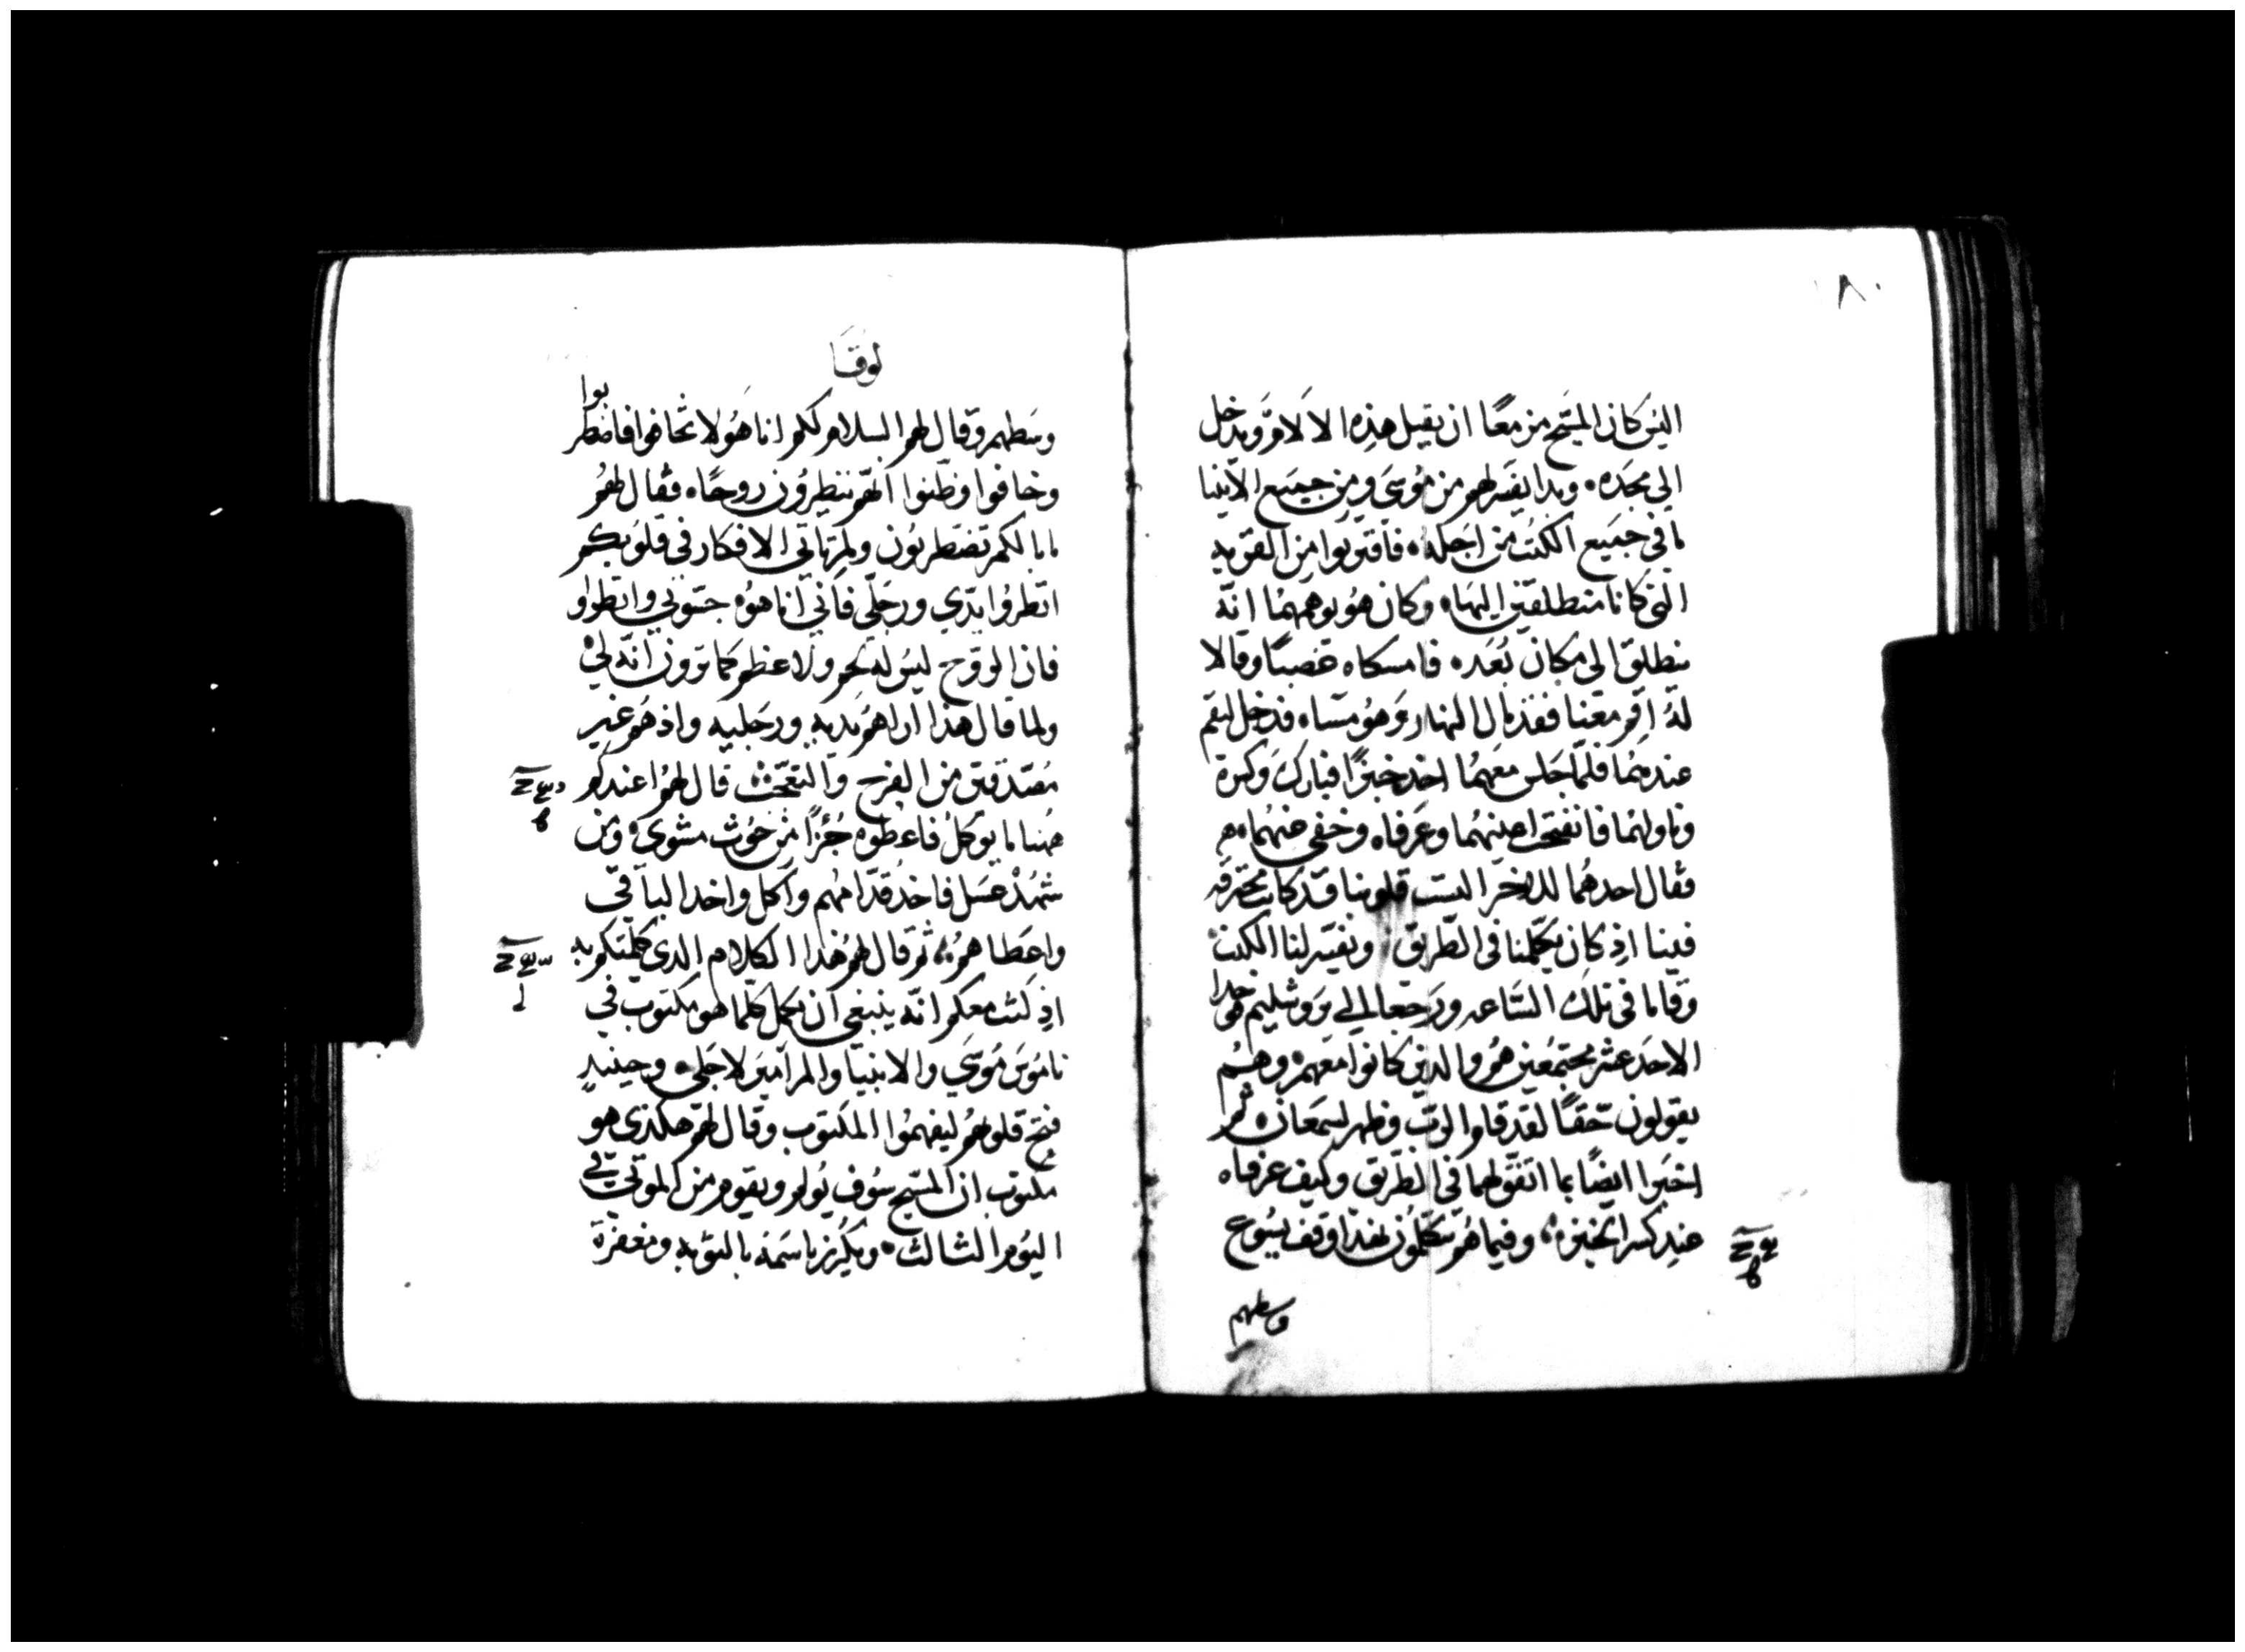 ٨٠
اليس كان المسيح مزمعًا ان يقبل هذه الالام ويدخل
الي مجده. وبدا يفسر لهم من موسي ومن جميع الانبيا
ما في جميع الكتب من اجله. فاقتربوا من القريه
التي كانا منطلقين اليها. وكان هو يوهمهما انه
منطلق الى مكان بُعده فامسكاه غصبًا وقالا
لهُ اقم معنا فقد مال النهار وهو مساه فدخل ليقم
عندهما فلما جلس معهما اخد خبزًا فبارك وكسرة
وناولهما فانفتحت اعينهما وعرفاه وخفي عنهما
فقال احدهما للاخر اليست قلوبنا قد كانت محترقه
فينا اذ كان يكلمنا في الطريق ويفسر لنا الكتب
وقاما في تلك الساعه ورجعا الي يروشليم فوجدا
الاحد عشر مجتمعين هم والدين كانوا معهم وهم
يقولون حقًا لقد قام الرب وظهر لسمعان ثم
اخبرا ايضًا بما اتفق لهما في الطريق وكيف عرفاه
عند كسر الخبزه وفيما هم يتكلمون بهدا وقف يسوع
وسطهم
لوقا
وسطهم وقال لهم السلام لكم انا هو لا تخافوا فاضطربوا
وخافوا وظنوا انهم ينظرون روحًا. فقال لهم
ما بالكم تضطربون ولم تاتي الافكار في قلوبكم
انظروا يدي ورجلي فاني انا هوه جسوني وانظروا
فان الروح ليس له لحم ولا عظم كما ترون انه لي
ولما قال هذا اراهم يديه ورجليه واذ هم غير
مصدقين من الفرح والتعجب قال لهم اعندكم
هنا ما يوكل فاعطوه جُزًا من حوث مشوي ومن
شهد عسل فاخد قدامهم واكل واخد الباقي
واعطاهم ثم قال لهم هذا الكلام الدى كلمتكم به
اذ كنت معكم انه ينبغي ان يكمل كلما هو مكتوب في
ناموس موسي والانبيا والمزامير لاجلي. وحينيدٍ
فتح قلوبهم ليفهموا المكتوب وقال لهم هكذى هو
مكتوب ان المسيح سوف يولم ويقوم من الموتي في
اليوم الثالث. ويكرز باسمه بالتوبه ومغفرة